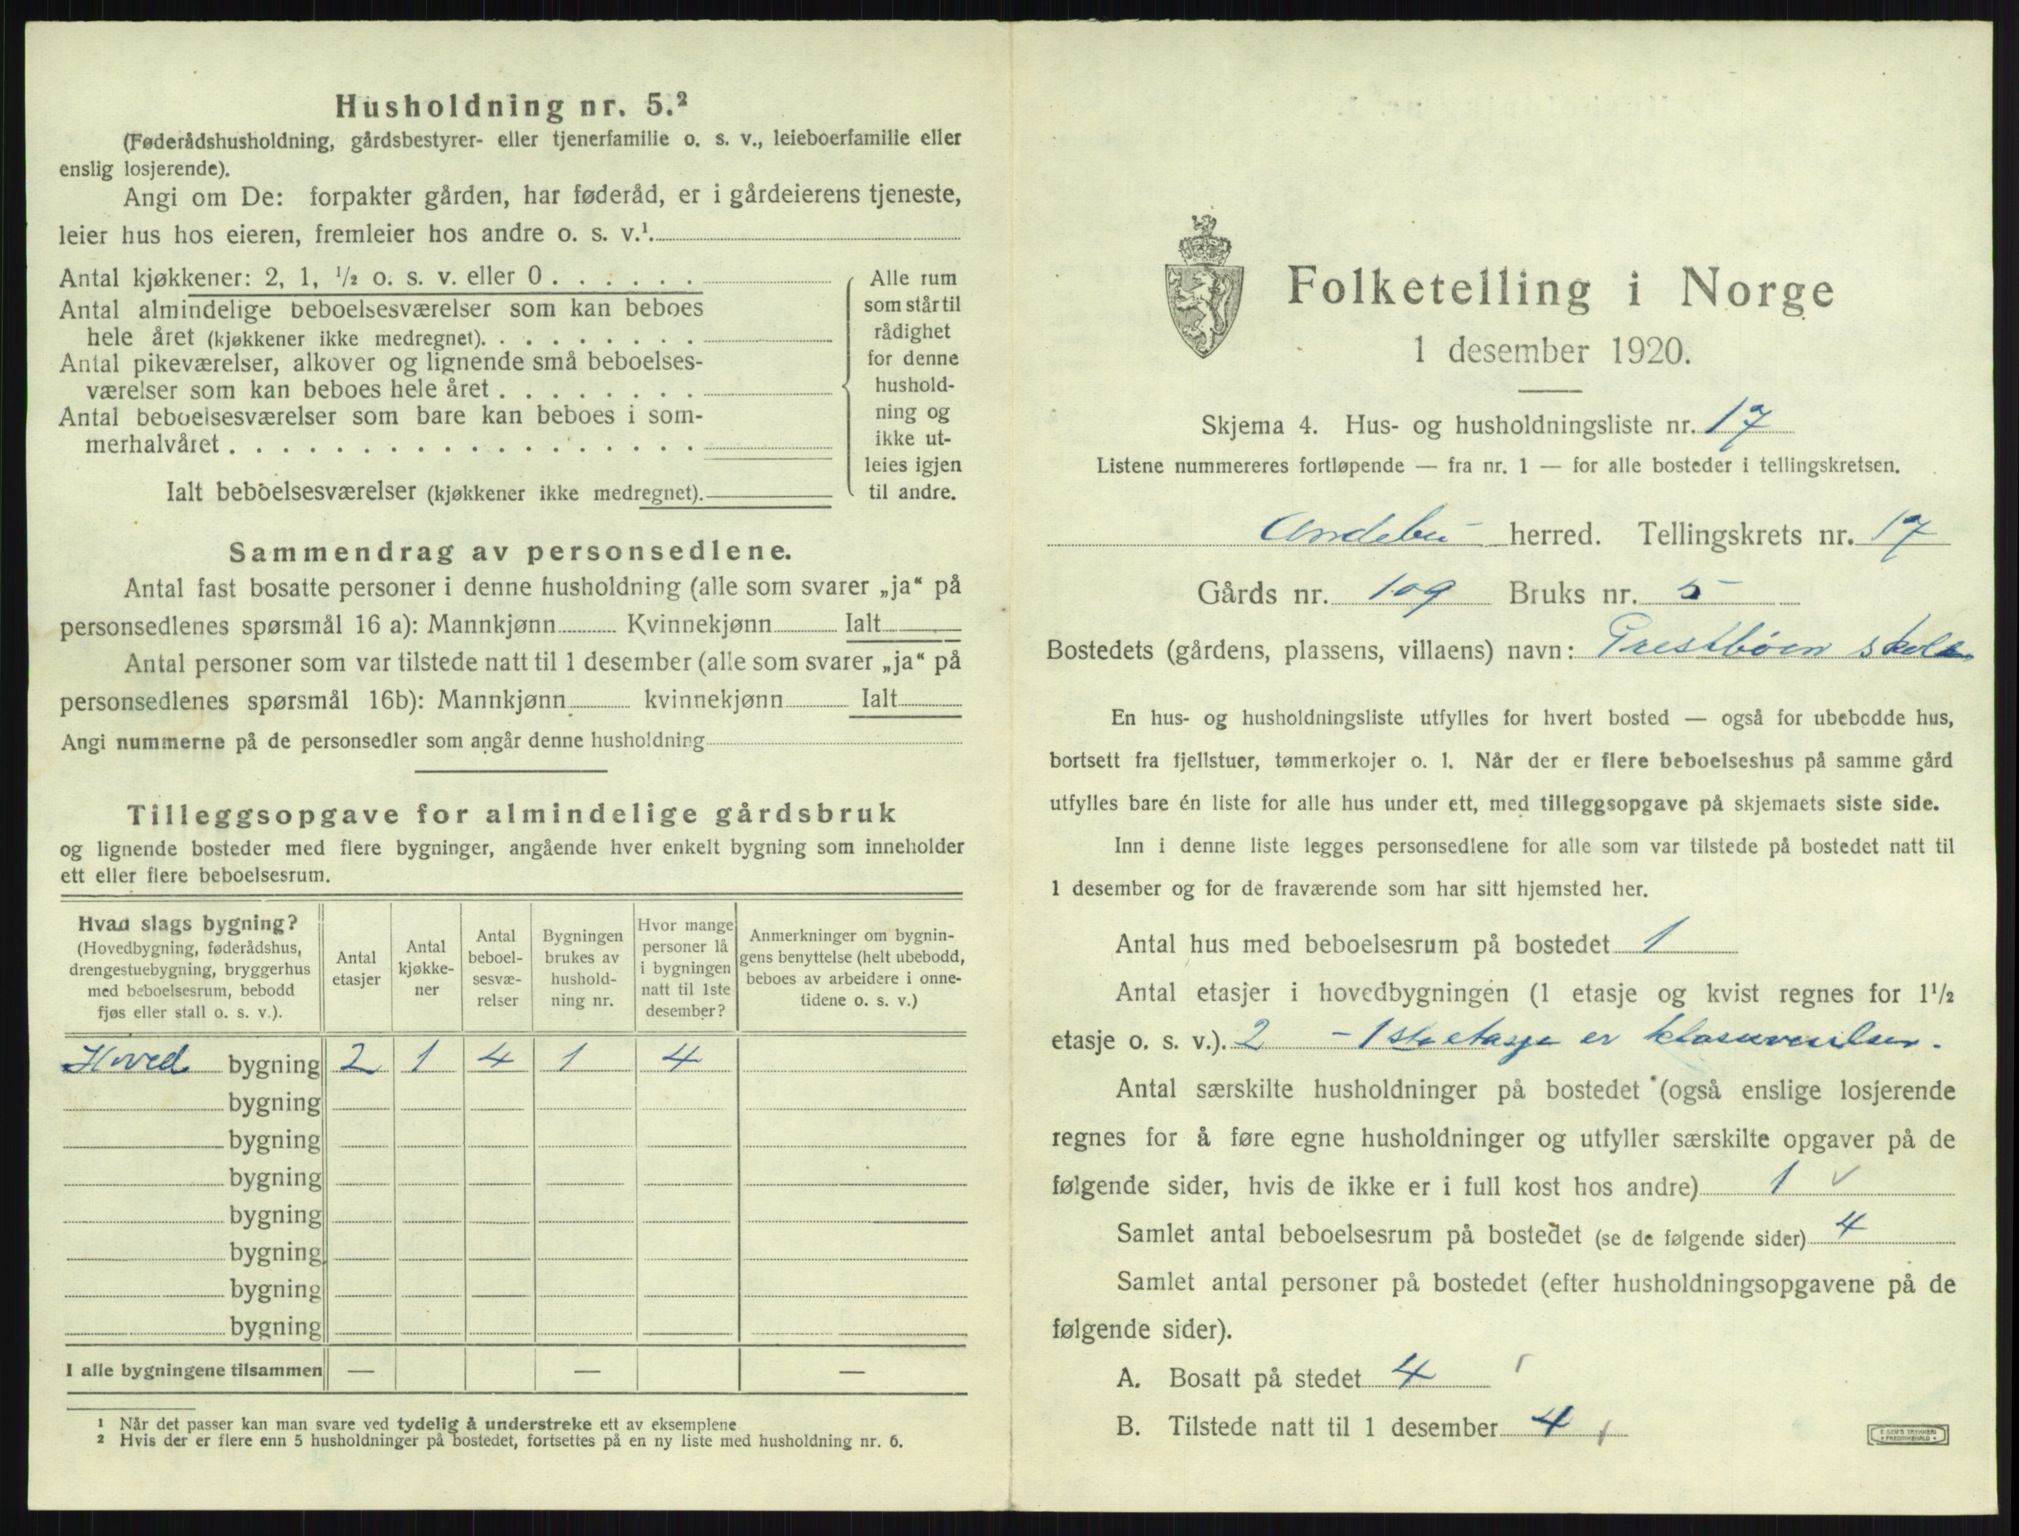 Husholdning nr. 5.²
(Føderådshusholdning, gårdsbestyrer- eller tjenerfamilie o. s. v., leieboerfamilie eller
enslig losjerende).
Angi om De: forpakter gården, har føderåd, er i gårdeierens tjeneste,
leier hus hos eieren, fremleier hos andre o. s. v.¹
Antal kjøkkener: 2, 1, ½ o. s. v. eller 0
Antal almindelige beboelsesværelser som kan beboes
hele året (kjøkkener ikke medregnet)
Antal pikeværelser, alkover og lignende små beboelses-
værelser som kan beboes hele året
Antal beboelsesværelser som bare kan beboes i som-
merhalvåret
Ialt beboelsesværelser (kjøkkener ikke medregnet)
Alle rum
som står til
rådighet
for denne
hushold-
ning og
ikke ut-
leies igjen
til andre.
Sammendrag av personsedlene.
Antal fast bosatte personer i denne husholdning (alle som svarer „ja“ på
personsedlenes spørsmål 16 a): Mannkjønn Kvinnekjønn Ialt
Antal personer som var tilstede natt til 1 desember (alle som svarer „ja“ på
personsedlenes spørsmål 16b): Mannkjønn kvinnekjønn Ialt
Angi nummerne på de personsedler som angår denne husholdning
Tilleggsopgave for almindelige gårdsbruk
og lignende bosteder med flere bygninger, angående hver enkelt bygning som inneholder
ett eller flere beboelsesrum.
Hvad slags bygning?
(Hovedbygning, føderådshus,
drengestuebygning, bryggerhus
med beboelsesrum, bebodd
fjøs eller stall o. s. v.).
Antal
etasjer
Antal
kjøkke-
ner
Antal
beboel-
sesvæ-
relser
Bygningen
brukes av
hushold-
ning nr.
Hvor mange
personer lå
i bygningen
natt til 1ste
desember?
Anmerkninger om bygnin-
gens benyttelse (helt ubebodd,
beboes av arbeidere i onne-
tidene o. s. v.)
Hoved bygning 2 1 4 1 4
bygning
bygning
bygning
bygning
bygning
bygning
bygning
I alle bygningene tilsammen — — —
¹ Når det passer kan man svare ved tydelig å understreke ett av eksemplene
² Hvis der er flere enn 5 husholdninger på bostedet, fortsettes på en ny liste med husholdning nr. 6.
Folketelling i Norge
1 desember 1920.
Skjema 4. Hus- og husholdningsliste nr. 17
Listene nummereres fortløpende — fra nr. 1 — for alle bosteder i tellingskretsen.
Andebu herred. Tellingskrets nr. 17
Gårds nr. 109 Bruks nr. 5
Bostedets (gårdens, plassens, villaens) navn: Prestbøen skole
En hus- og husholdningsliste utfylles for hvert bosted — også for ubebodde hus,
bortsett fra fjellstuer, tømmerkojer o. l. Når der er flere beboelseshus på samme gård
utfylles bare én liste for alle hus under ett, med tilleggsopgave på skjemaets siste side.
Inn i denne liste legges personsedlene for alle som var tilstede på bostedet natt til
1 desember og for de fraværende som har sitt hjemsted her.
Antal hus med beboelsesrum på bostedet 1
Antal etasjer i hovedbygningen (1 etasje og kvist regnes for 1½
etasje o. s. v.). 2 - 1ste etasje er klasseværelser.
Antal særskilte husholdninger på bostedet (også enslige losjerende
regnes for å føre egne husholdninger og utfyller særskilte opgaver på de
følgende sider, hvis de ikke er i full kost hos andre) 1
Samlet antal beboelsesrum på bostedet (se de følgende sider) 4
Samlet antal personer på bostedet (efter husholdningsopgavene på de
følgende sider).
A. Bosatt på stedet 4
B. Tilstede natt til 1 desember 4